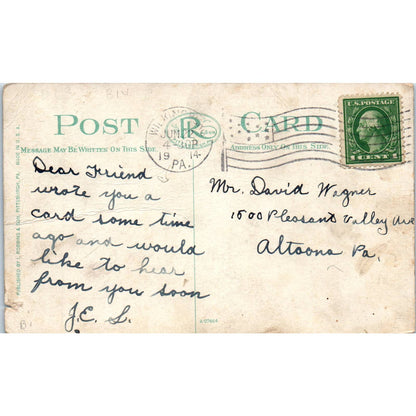 POST CARD
MESSAGE MAY BE WRITTEN ON THIS SIDE
ADDRESS ONLY ON THIS SIDE.
WILKINS
JUN
4 30P
1914
PA.
U.S. POSTAGE
1 CENT 1
Dear Friend
wrote you a
card some time
ago and would
like to hear
from you soon
J.E. S.
Mr. David Wagner
1500 Pleasant Valley Ave
Altoona Pa.
PUBLISHED BY I. ROBBINS & SON, PITTSBURGH, PA. MADE IN U.S.A.